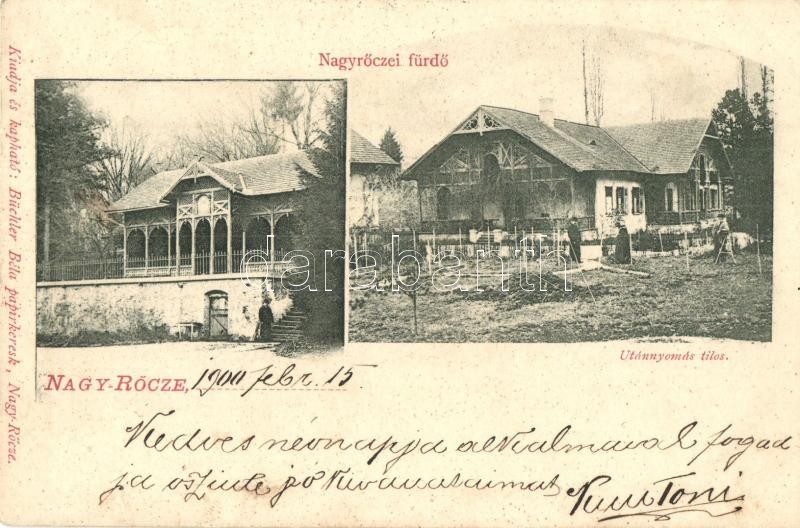 Nagyrőczei fürdő
Kiadja és kapható: Büchler Béla papirkeresk, Nagy-Rőcze.
darabanth
Utánnyomás tilos.
NAGY-RŐCZE, 1900 febr. 15
Kedves névnapja alkalmával fogad
ja őszinte jó kivánataimat
Toni